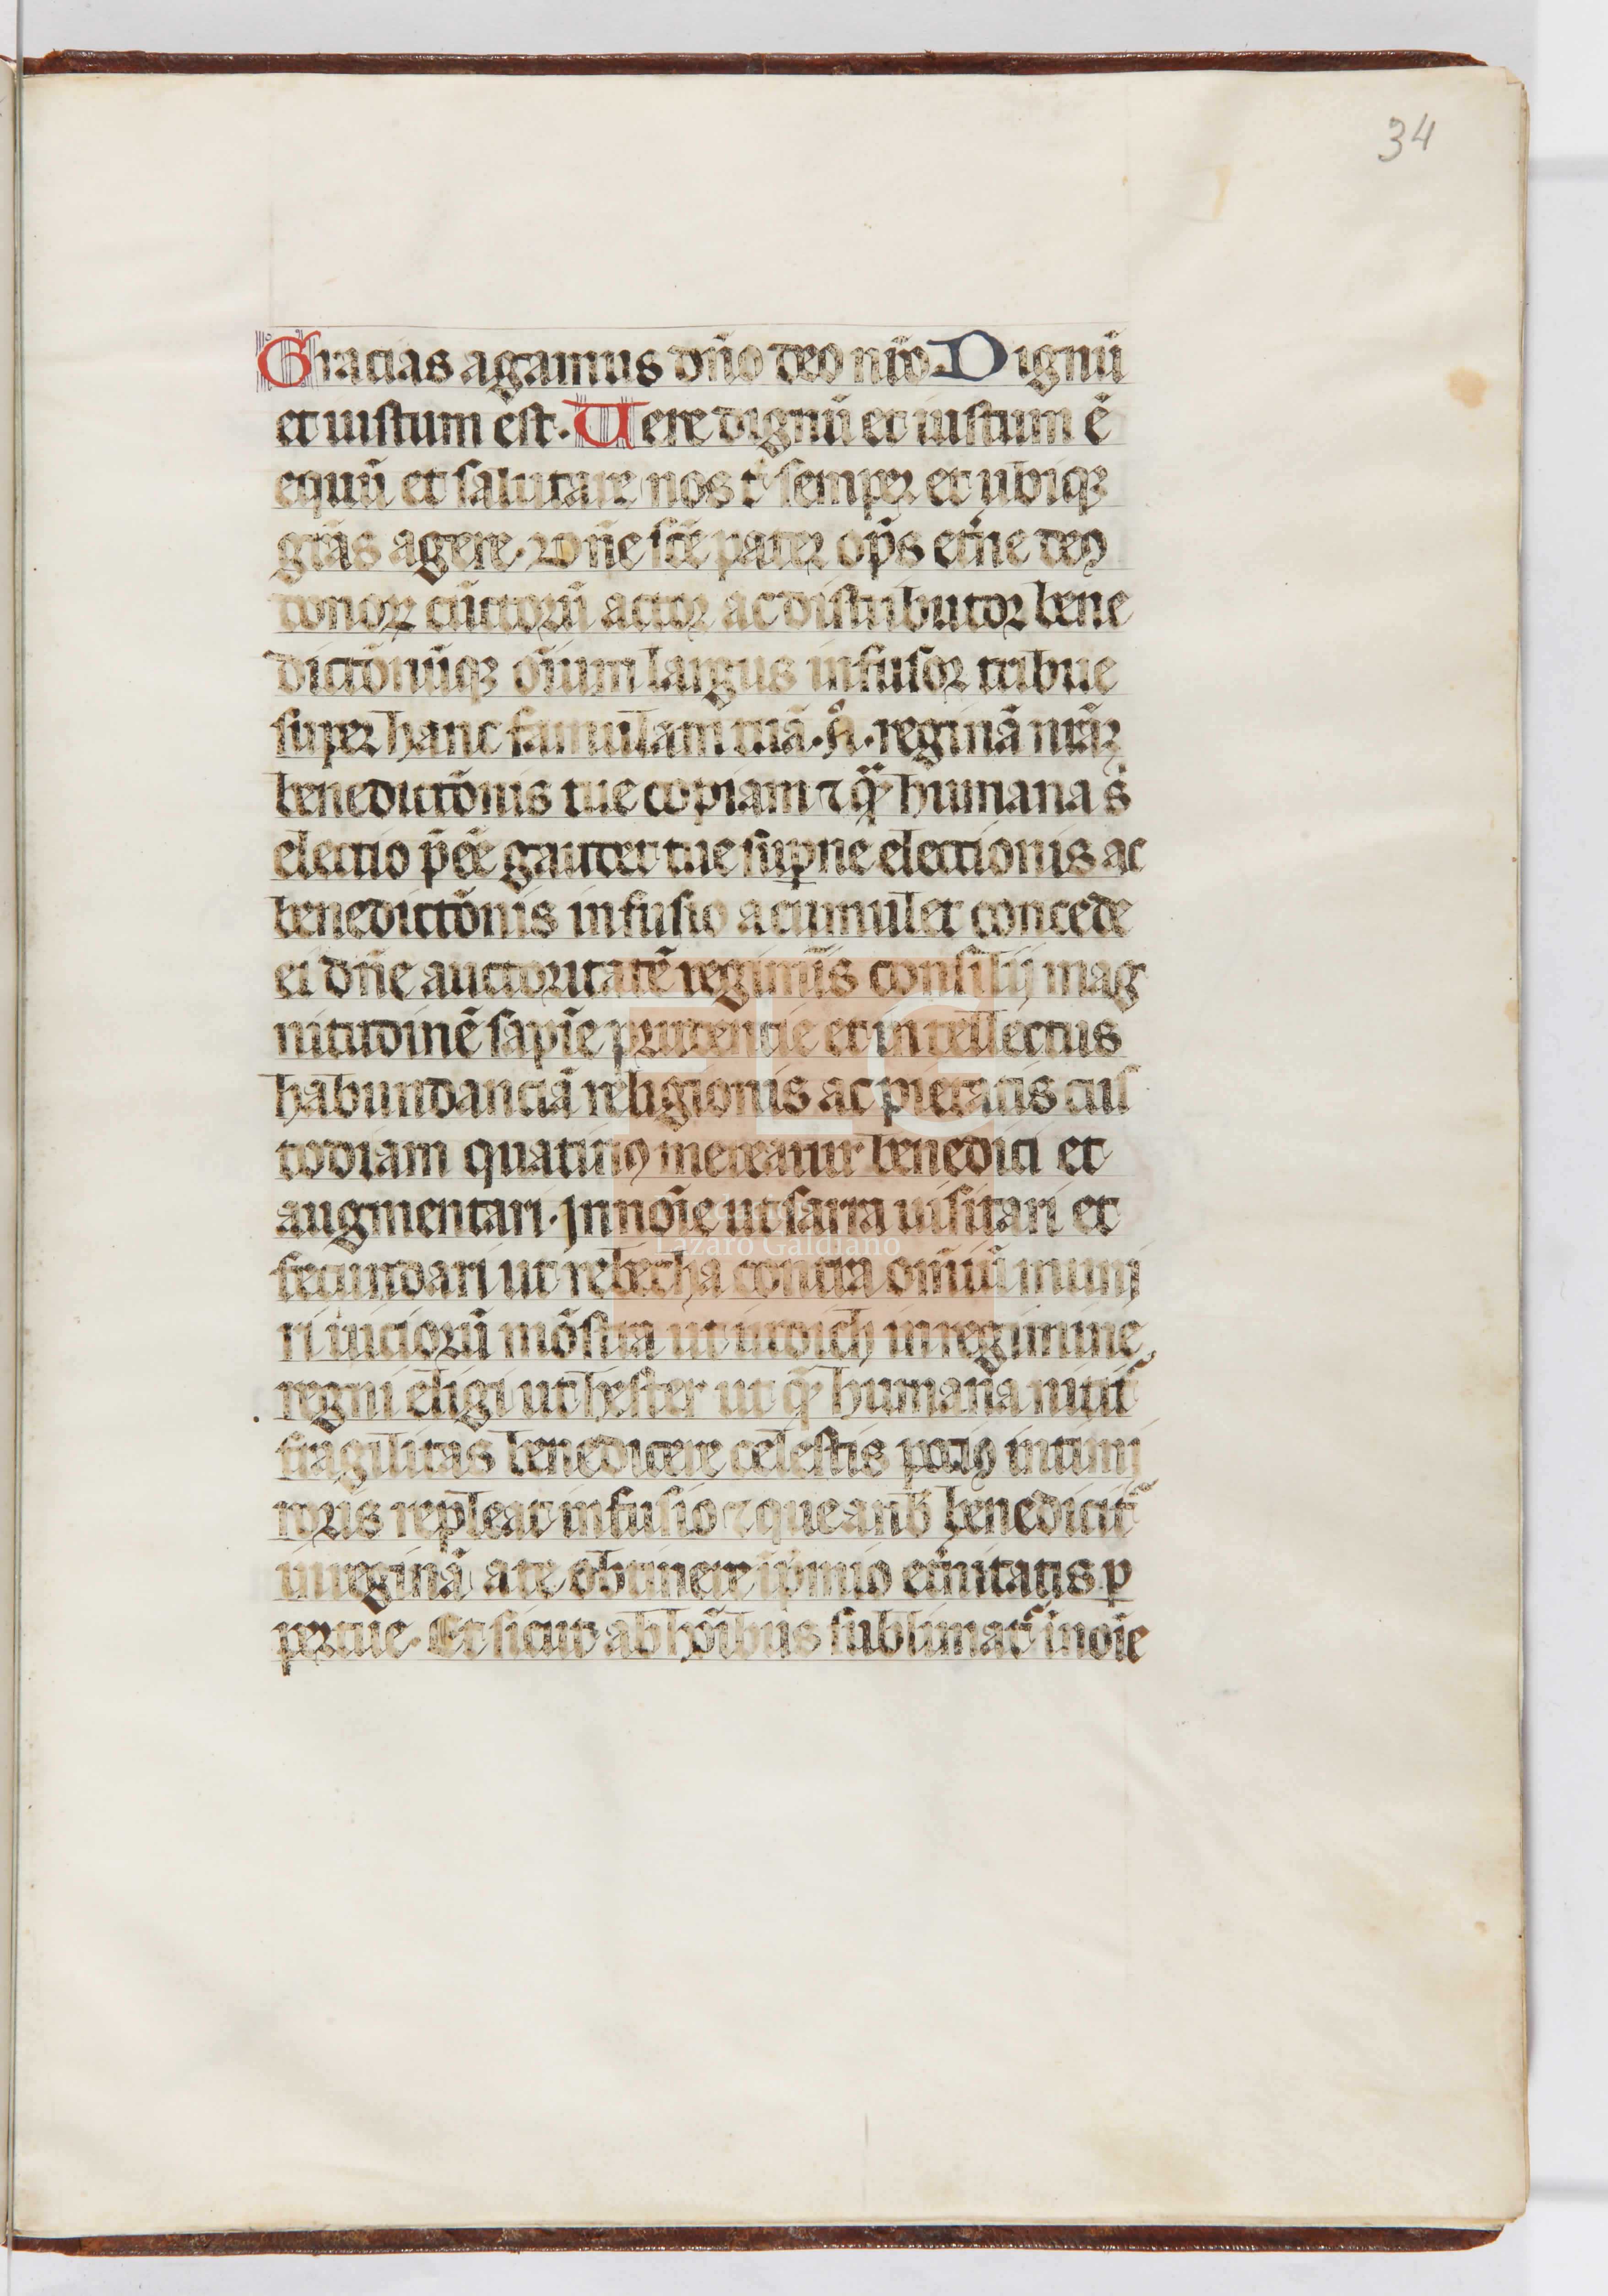 34
Gracias agamus dño deo nr̃o. Dignũ
et iustum est. Uere dignũ et iustum ẽ
equũ et salutare nos t̾ semper et ubiqꝫ
grãs agere. Dñe sc̃e pater op̃s et̾ne deꝰ
honor cũctorũ actor ac distributor bene
dictõnũqꝫ oĩum largus infusor tribue
super hanc famulam tuã. A. reginã nrãꝫ
benedictõnis tue copiam ⁊ q̃ humana s̾
electio p̃ẽe gaudet tue sup̱ne electionis ac
benedictõnis infusio acumulet concede
ei dñe auctoritatẽ regiminis consilij mag
nitudinẽ sapĩe prudencie et intellectus
habundanciã religionis ac pietatis cus
todiam quatinꝰ mereatur benedici et
augmentari. Jn noĩe ut sarra uisitari et
fecundari ut rebecha contra omiũ muni
ri uiciorũ mõstra ut iudich in regimine
regni eligi ut hester ut q̃ humana nitit̾
fragilitas benedicere celestis pociꝰ intimi
roris repleat infusio ⁊ que a nob̃ benedicit̾
in reginã a te obtinere ĩ p̾mio et̾nitatis ꝑ
petue. Et sicut ab hoĩbus sublimat̾ in oĩe
Lázaro Galdiano